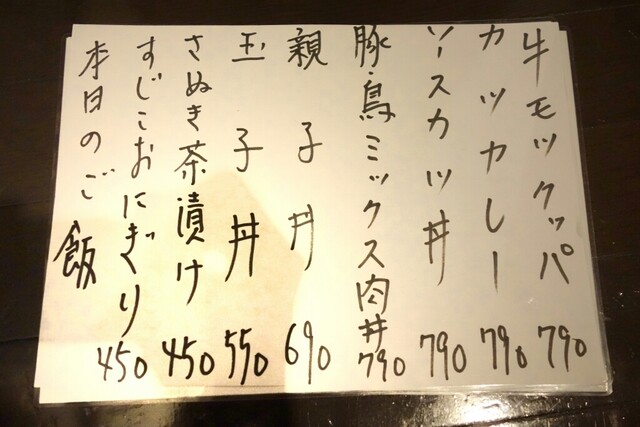 牛モックッパ 790
カツカレー 790
ソースカツ丼 790
豚・鳥ミックス肉丼 790
親子丼 690
玉子丼 550
さぬき茶漬け 450
すじこおにぎり 450
本日のご飯